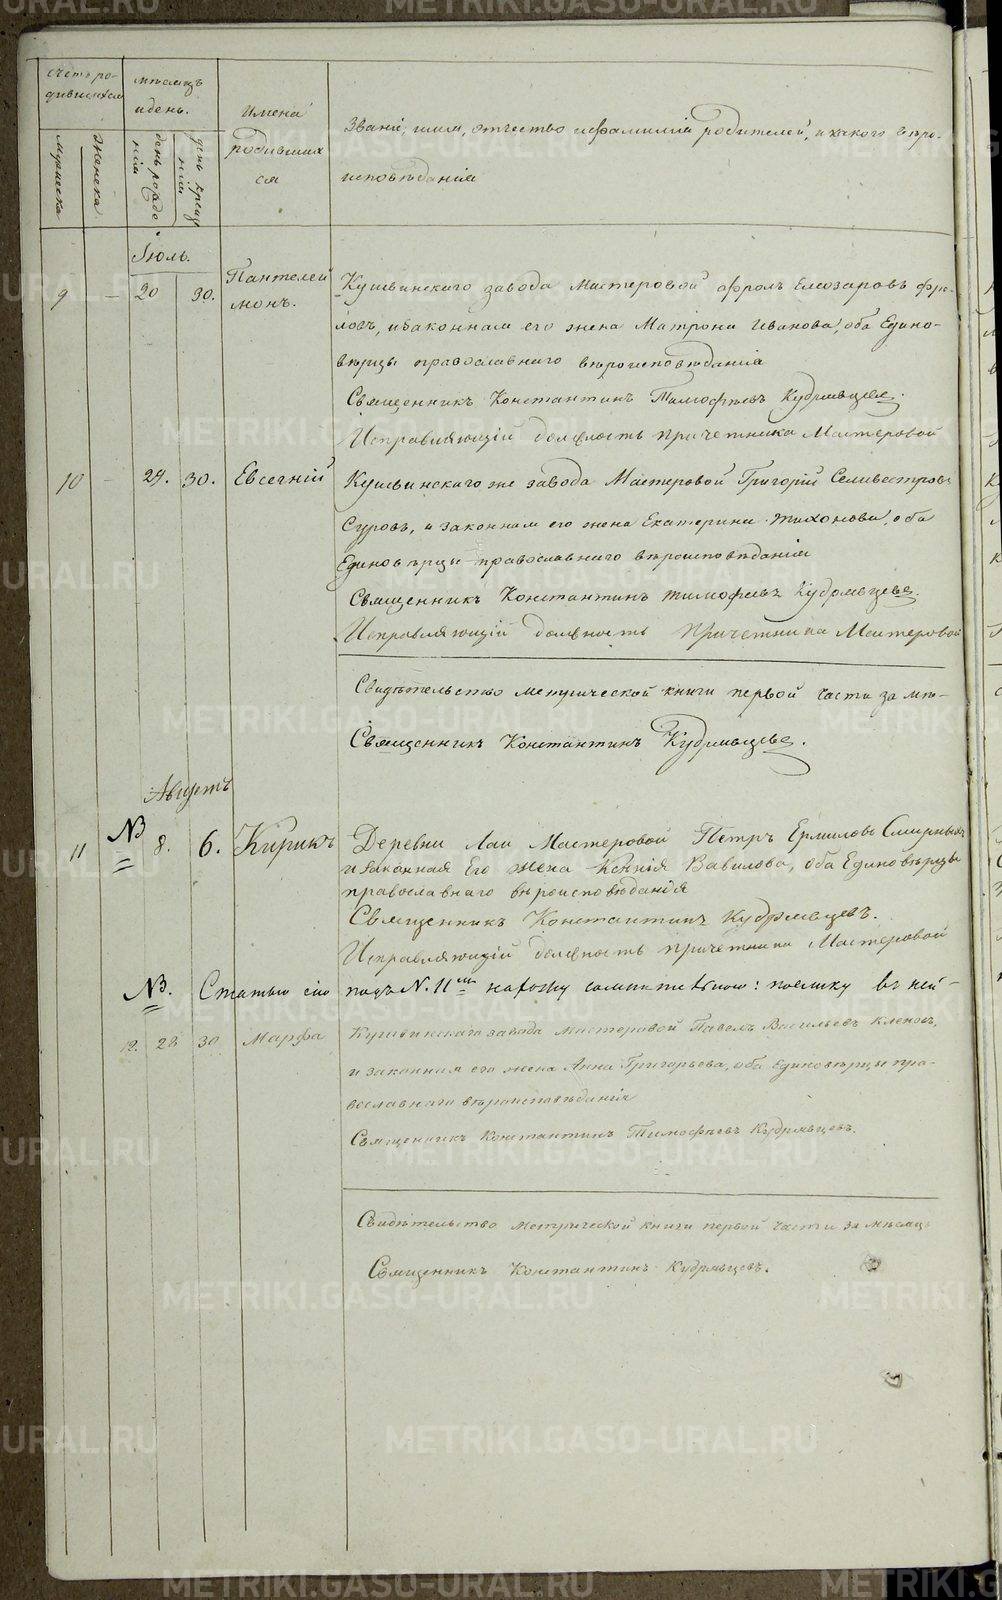 счетъ ро-
дившихся
мѣсяцъ
и день.
имена
Родивших
ся
мужеска
женска
день рожде
нія
день крещ
нія
Званіе, имя, отчество и фамилія родителей, и какого вѣро-
исповѣданія
Іюль.
9 – 20 30. Пантелей
монъ.
Кушвинскаго завода Мастеровой Фролъ Елеозаровъ Фро-
ловъ, и законная его жена Матрона Иванова, оба Едино-
вѣрцы православнаго вѣроисповѣданія
Священникъ Константинъ Тимофѣевъ Кудрявцевъ.
Исправляющій должность причетника Мастеровой
10 – 24. 30. Евсегній Кушвинскаго же завода Мастеровой Григорій Селивестровъ
Суровъ, и законная его жена Екатерина Тихонова, оба
Единовѣрцы православнаго вѣроисповѣданія
Священникъ Константинъ Тимофѣевъ Кудрявцевъ.
Исправляющій должность Причетника Мастеровой
Свидѣтельство метрической книги первой части за мѣ-
Священникъ Константинъ Кудрявцевъ.
Августъ
11 NB 8. 6. Кирикъ Деревни Лаи Мастеровой Петръ Ермиловъ Смирныхъ
и законная Его жена Ксенія Вавилова, оба Единовѣрцы
православнаго вѣроисповѣданія
Священникъ Константинъ Кудрявцевъ.
Исправляющій должность причетника Мастеровой
NB. Статью сію подъ N. 11мъ нахожу : поелику въ ней –
12. 28 30 Марфа Кушвинскаго завода мастеровой Павелъ Васильевъ Кленовъ,
и законная его жена Анна Григорьева, оба Единовѣрцы пра-
вославнаго вѣроисповѣданія
Священникъ Константинъ Тимофѣевъ Кудрявцевъ.
Свидѣтельство метрической книги первой части за мѣсяцъ
Священникъ Константинъ Кудрявцевъ.
METRIKI.GASO-URAL.RU